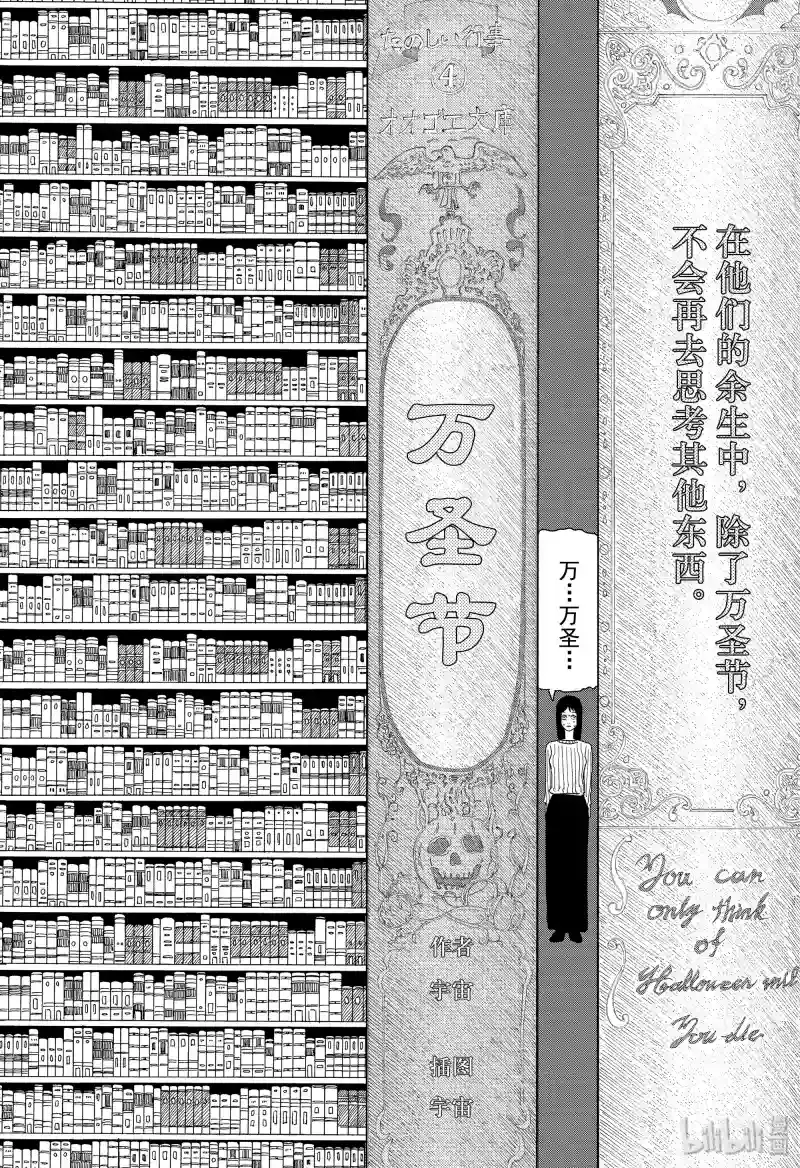 在他们的余生中，除了万圣节，
不会再去思考其他东西。
You can
only think
of
Halloween until
You die
万…万圣…
たのしい行事
④
オオゴエ文庫
万圣节
作者
宇宙
插图
宇宙
bilibili 漫画